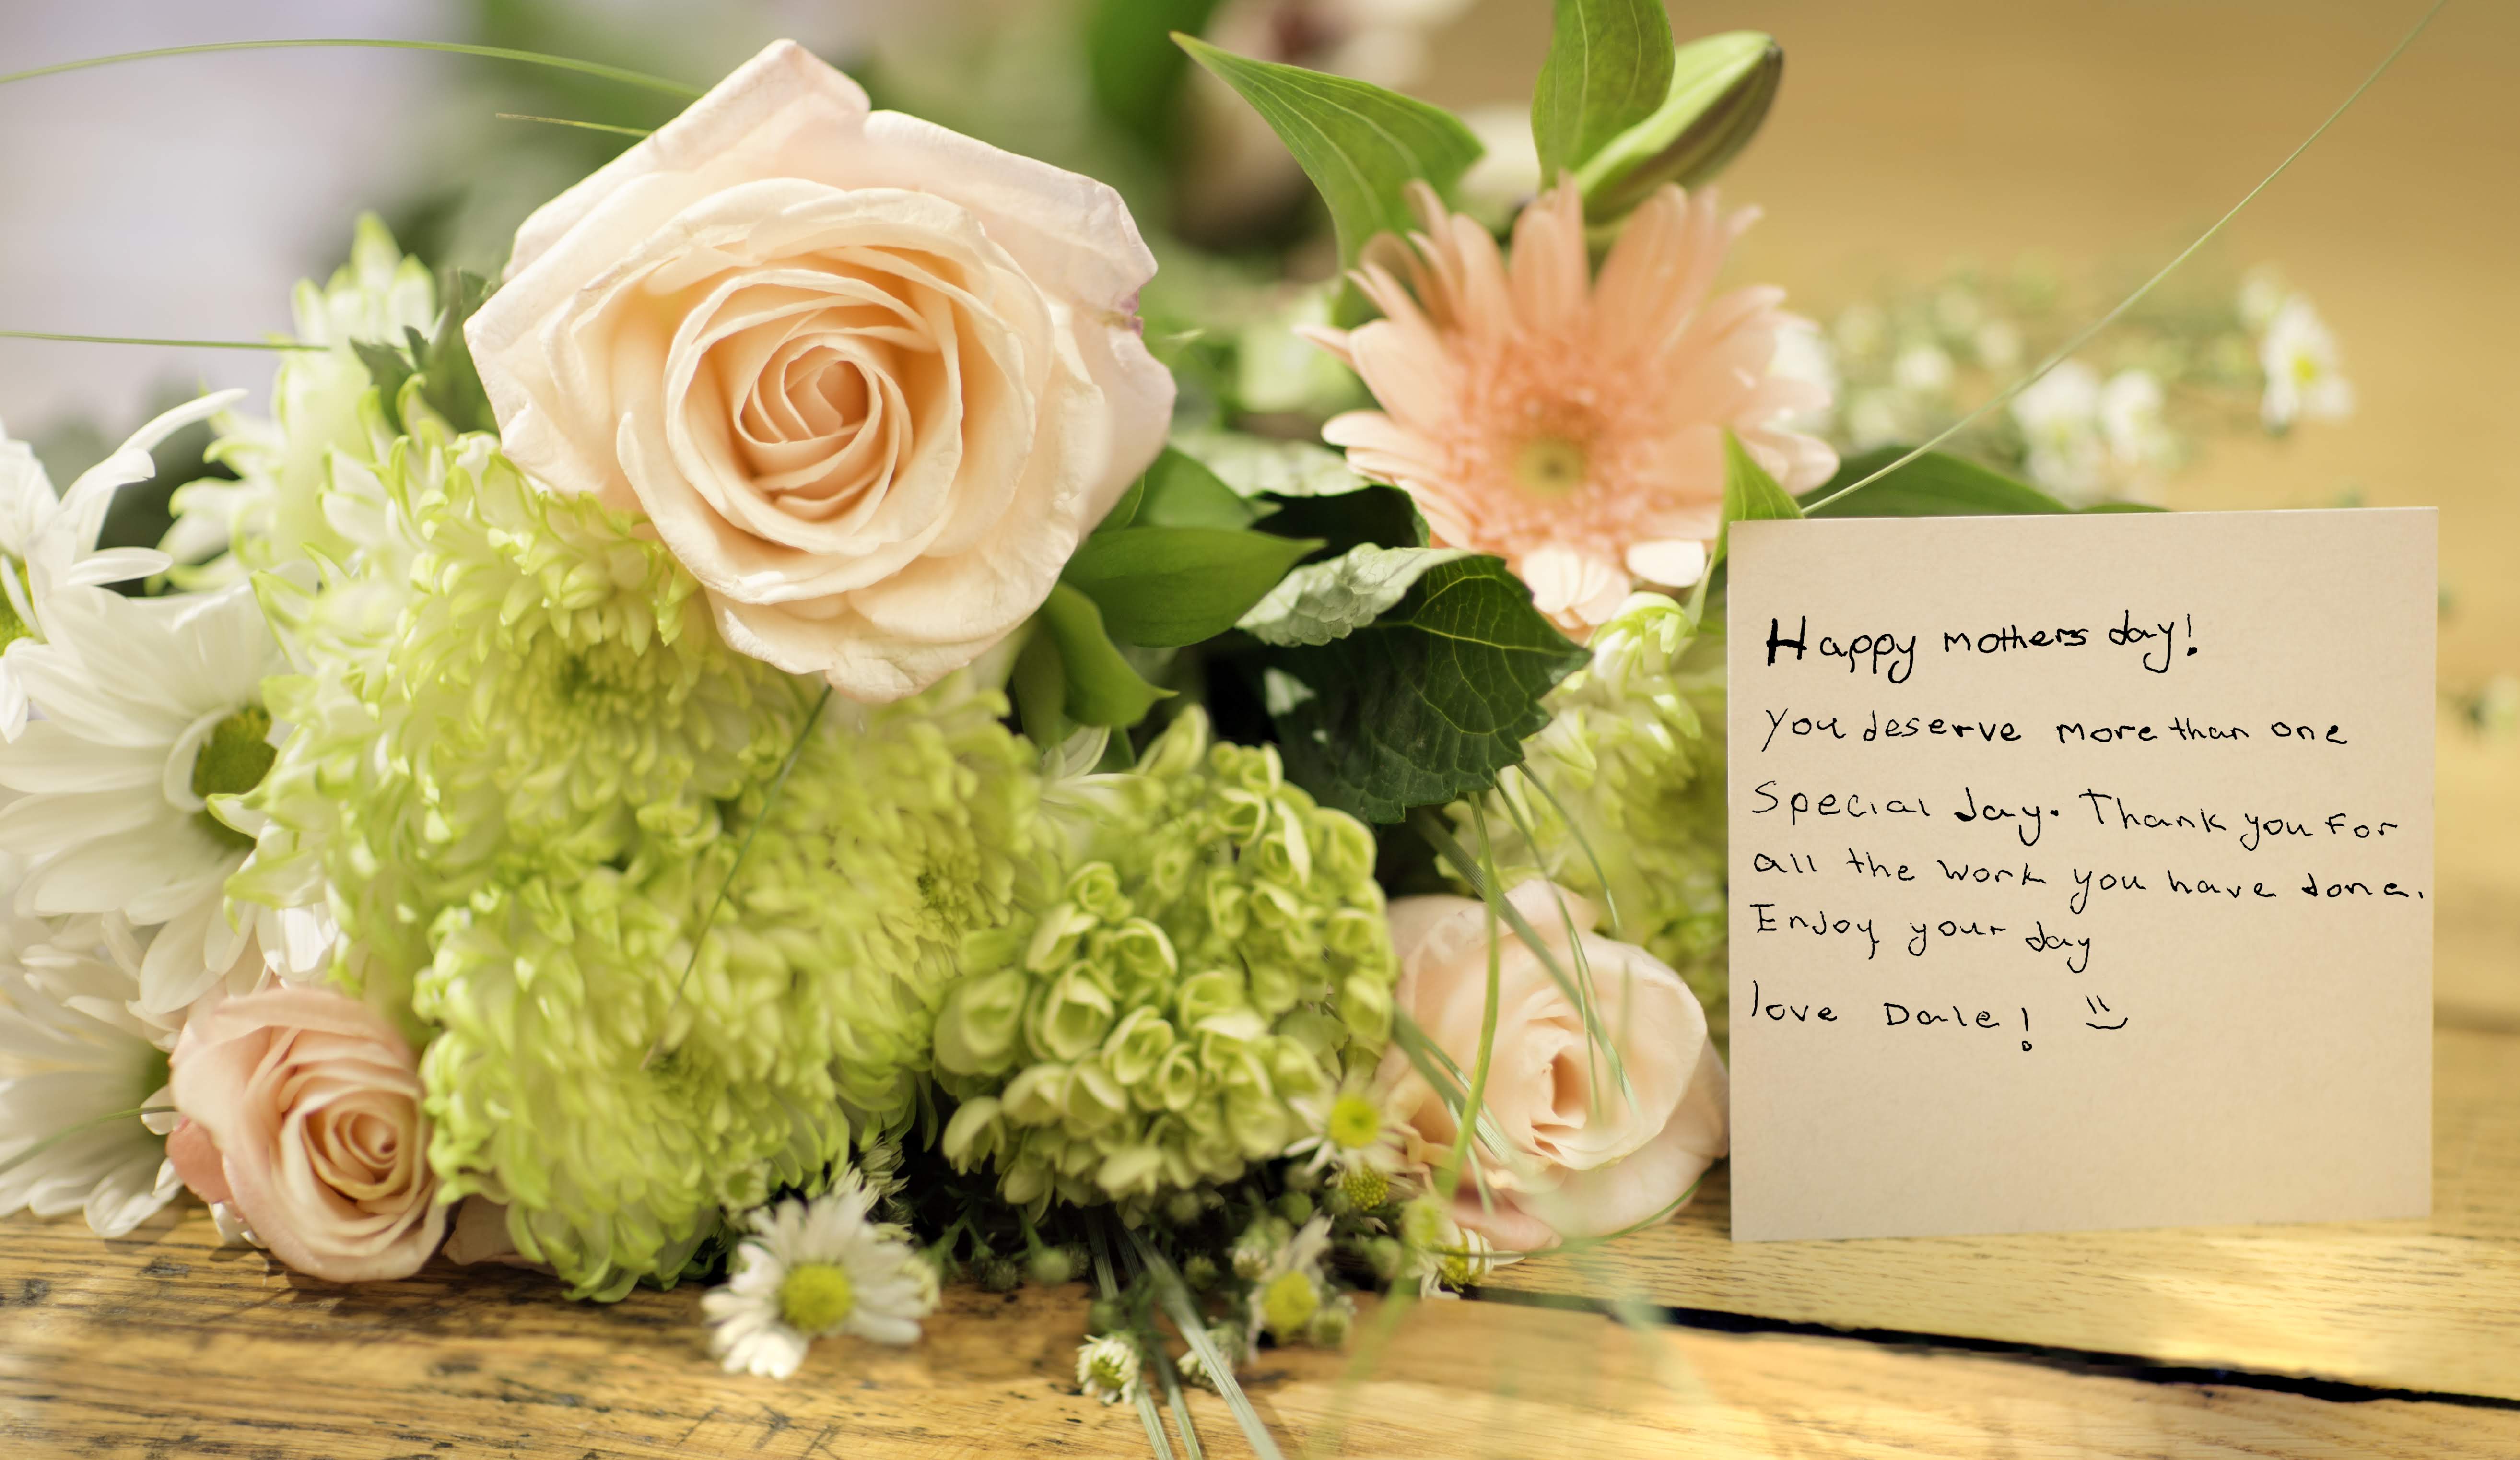 Happy mothers day!
you deserve more than one
Special day. Thank you For
all the work you have done.
Enjoy your day
love Dale! =)